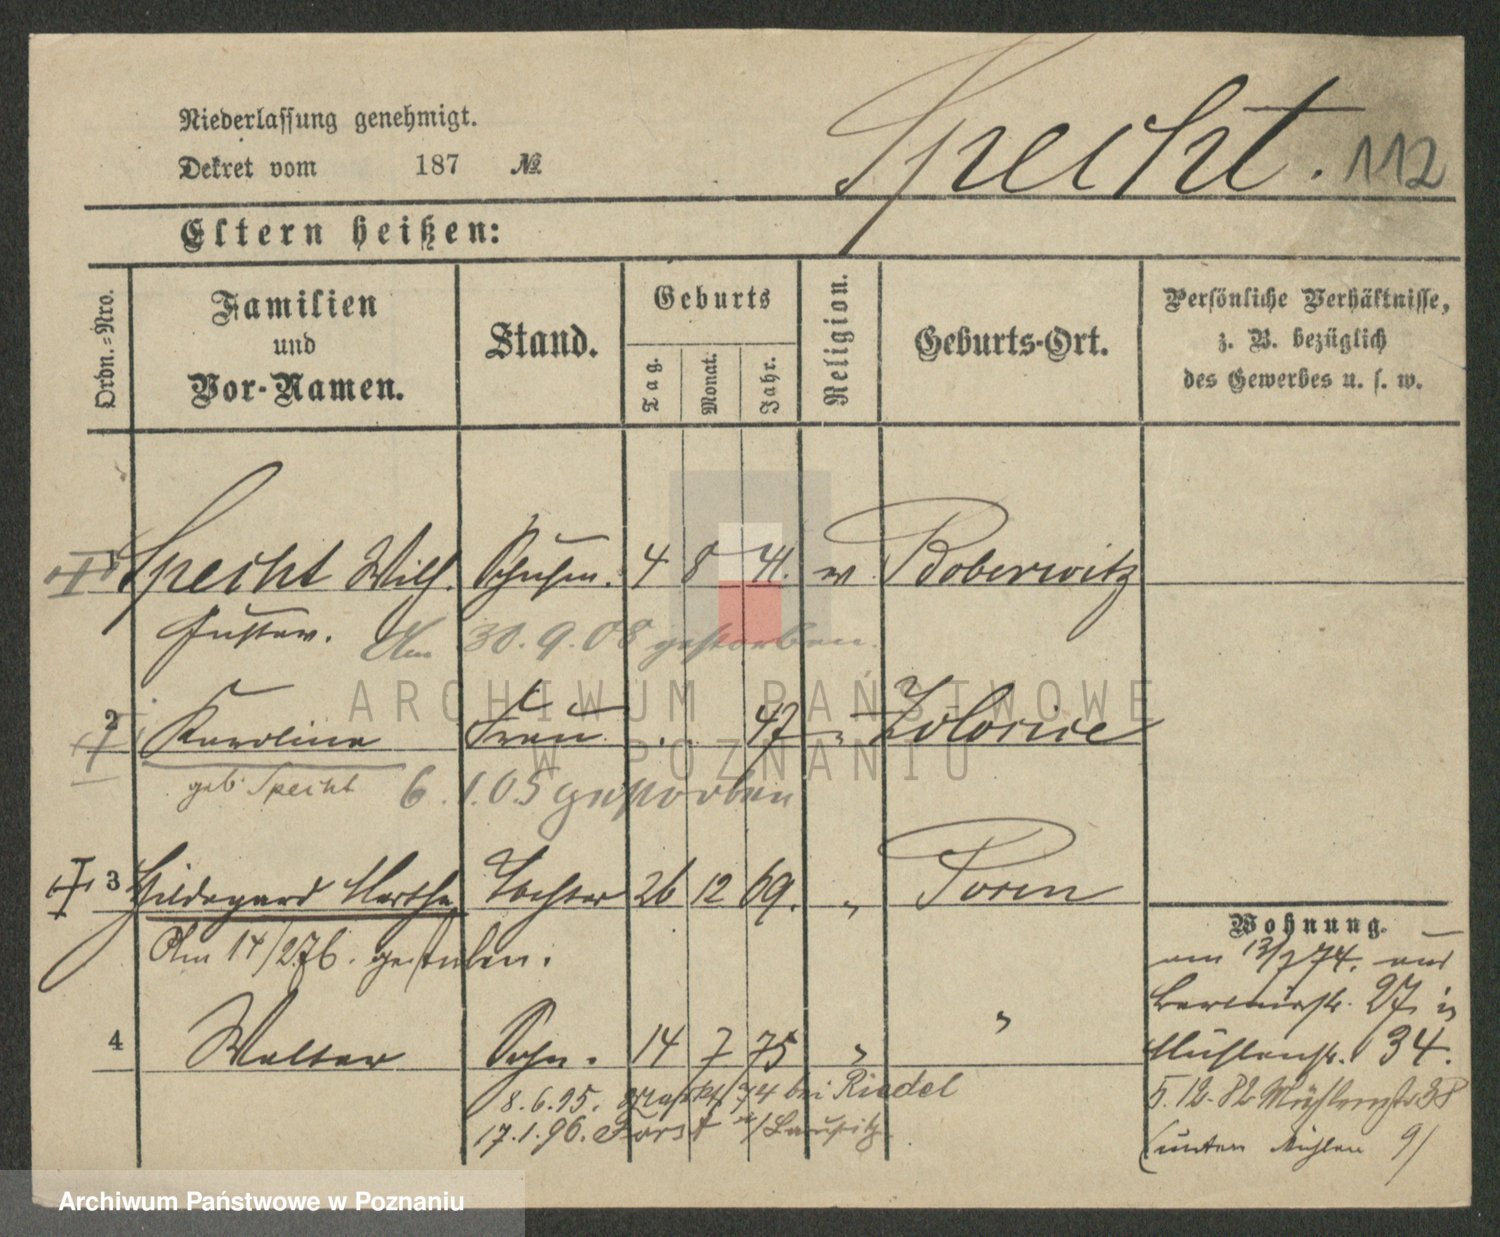 Niederlassung genehmigt.
Dekret vom 187 №
Specht. 112
Eltern heißen:
Ordn.-Nro.
Familien
und
Vor-Namen.
Stand.
Geburts
Tag.
Monat.
Jahr.
Religion.
Geburts-Ort.
Persönliche Verhältnisse,
z. B. bezüglich
des Gewerbes u. s. w.
1 Specht Wilh. 4 8 41. Boberwitz
Gustav. Am 30.9.08 gestorben.
ARCHIWUM PAŃSTWOWE
2 Karoline Frau 47 "
W POZNANIU
geb. Specht 6.1.05 gestorben
3 Hildegard Martha Tochter 26 12 69. " Posen
Am 14/2 76. gestorben.
4 Walter Sohn. 14 7 75 " "
8.6.95. Markt 74 bei Riedel
17.1.96. Forst i/Lausitz
Wohnung.
am 13/7 74. aus
27 in
Mühlenstr. 34.
5.12.82 Mühlenstr 38
(unten Mühlen 9/
Archiwum Państwowe w Poznaniu